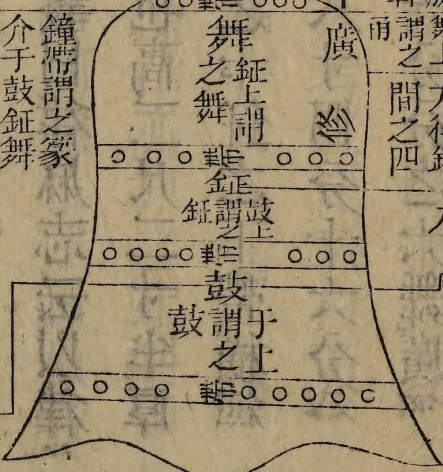 謂之
間之四
廣
脩
舞
鉦上謂
之舞
鉦
鼓上
謂之
鉦
鼓
于上
謂之
鼓
鐘帶謂之篆
介于鼓鉦舞